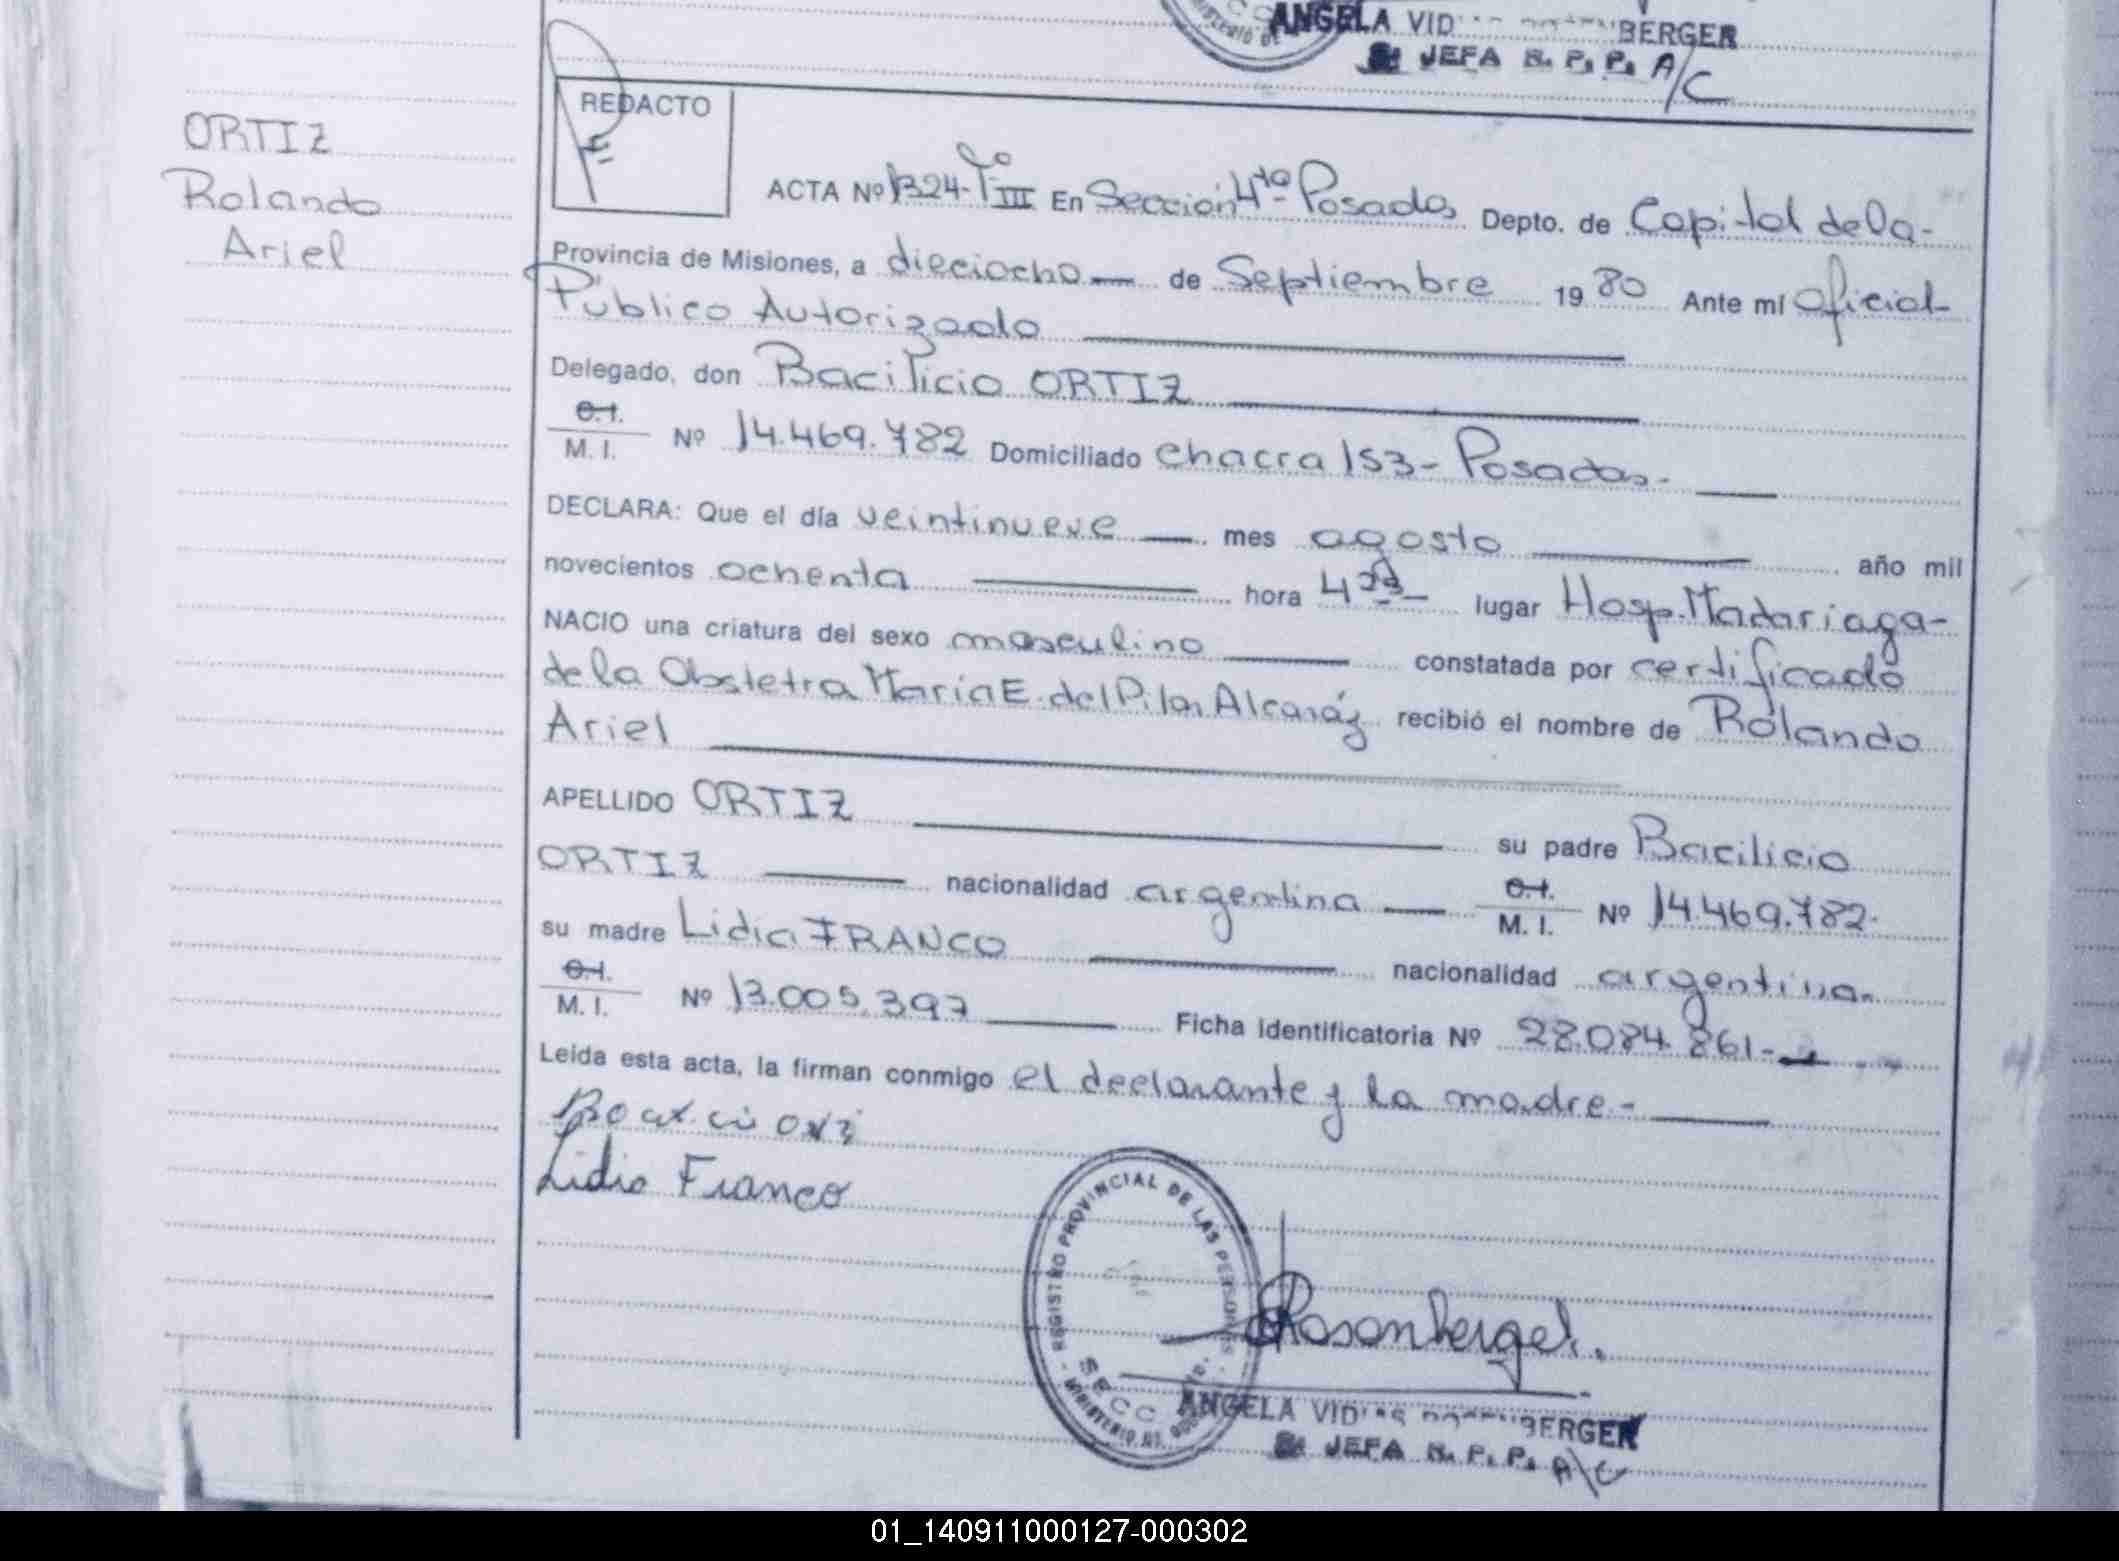 ANGELA VID BERGER
JEFA R. P. P. A/C
REDACTO
ORTIZ
Rolando
Ariel
ACTA Nº 1324-Tº III En Sección 4ta Posadas Depto. de Capital de la-
Provincia de Misiones, a dieciocho — de Septiembre 19 80 Ante mí Oficial
Público Autorizado
Delegado, don Bacilicio ORTIZ
C.I.
M. I. Nº 14.469.782 Domiciliado chacra 153- Posadas.
DECLARA: Que el día veintinueve — mes agosto — año mil
novecientos ochenta — hora 4 lugar Hosp. Madariaga-
NACIO una criatura del sexo masculino — constatada por certificado
de la Obstetra María E. del Pilar Alcaráz recibió el nombre de Rolando
Ariel
APELLIDO ORTIZ — su padre Bacilicio
ORTIZ — nacionalidad argentina — C.I.
M. I. Nº 14.469.782.
su madre Lidia FRANCO — nacionalidad argentina.
C.I.
M. I. Nº 13.005.397 — Ficha Identificatoria Nº 28.084.861-
Leída esta acta, la firman conmigo el declarante y la madre-
Lidia Franco
REGISTRO PROVINCIAL DE LAS PERSONAS
SECC
MINISTERIO DE
Rosenberger.
ANGELA VID BERGER
JEFA R. P. P. A/C
01_140911000127-000302